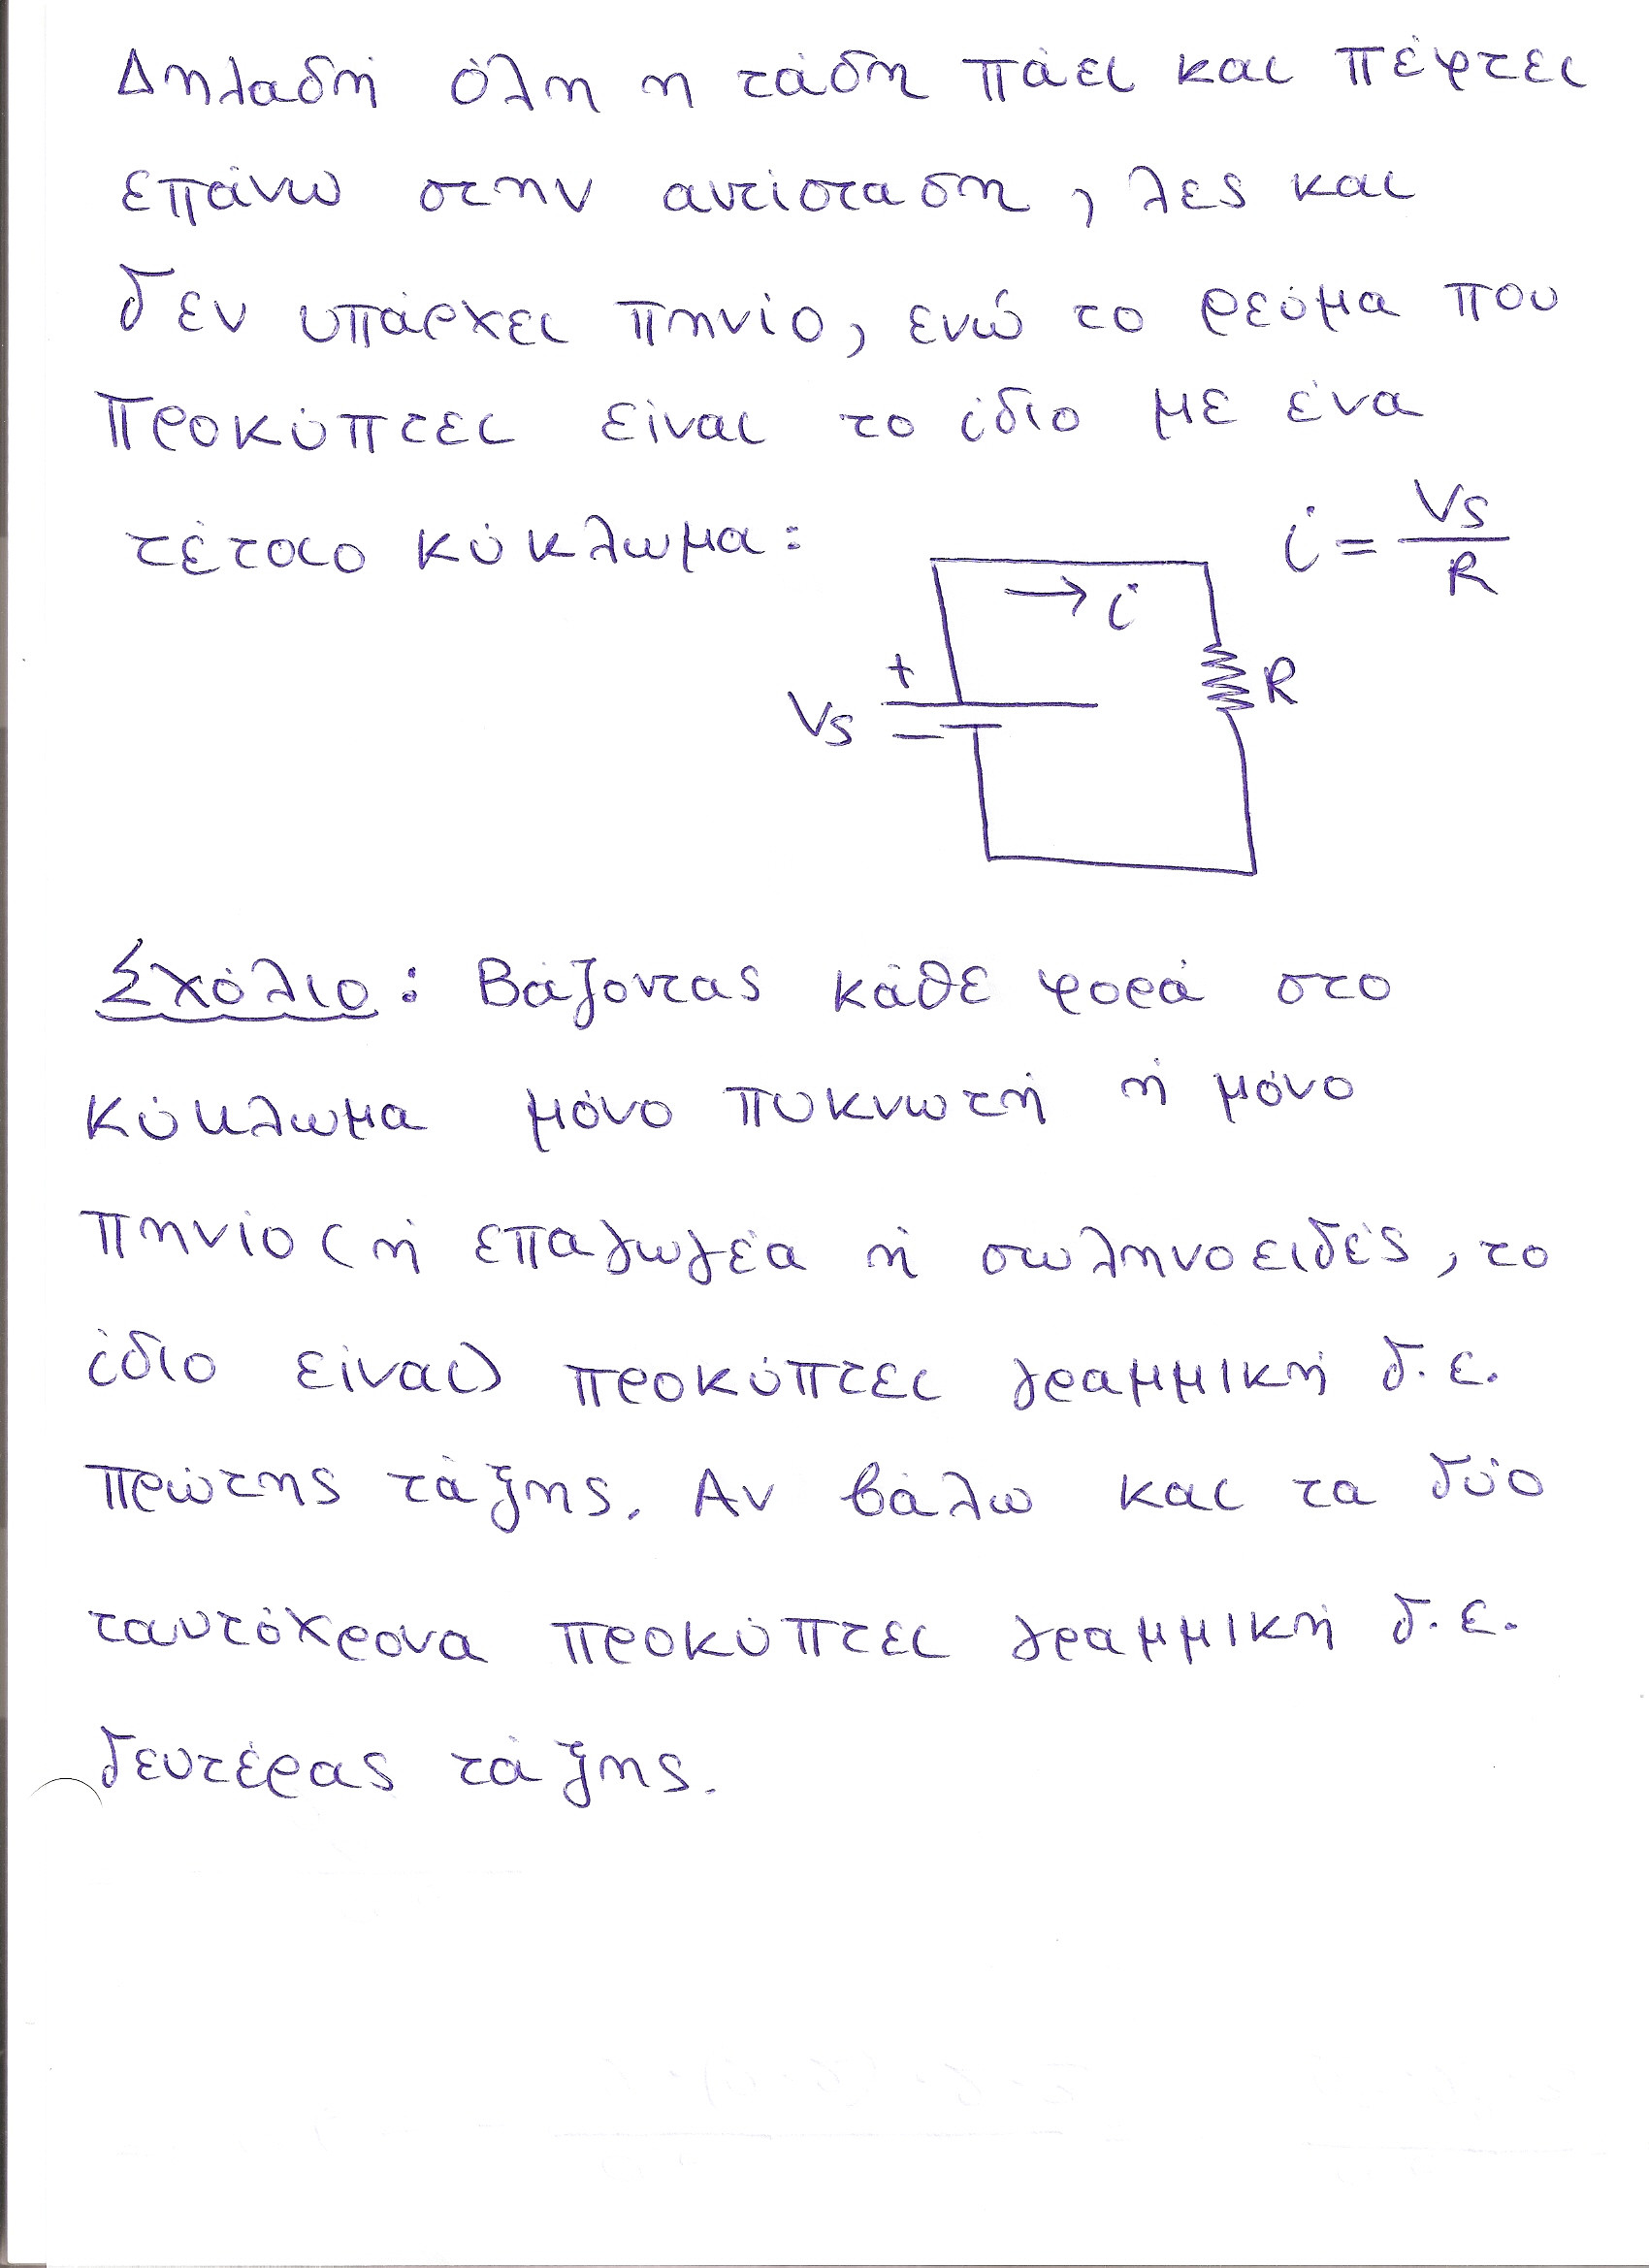 Δηλαδή όλη η τάση πάει και πέφτει
επάνω στην αντίσταση, λες και
δεν υπάρχει πηνίο, ενώ το ρεύμα που
προκύπτει είναι το ίδιο με ένα
τέτοιο κύκλωμα: i = Vs/R
→ i
+
Vs
−
R
Σχόλιο: Βάζοντας κάθε φορά στο
κύκλωμα μόνο πυκνωτή ή μόνο
πηνίο (ή επαγωγέα ή σωληνοειδές, το
ίδιο είναι) προκύπτει γραμμική δ.ε.
πρώτης τάξης. Αν βάλω και τα δύο
ταυτόχρονα προκύπτει γραμμική δ.ε.
δευτέρας τάξης.